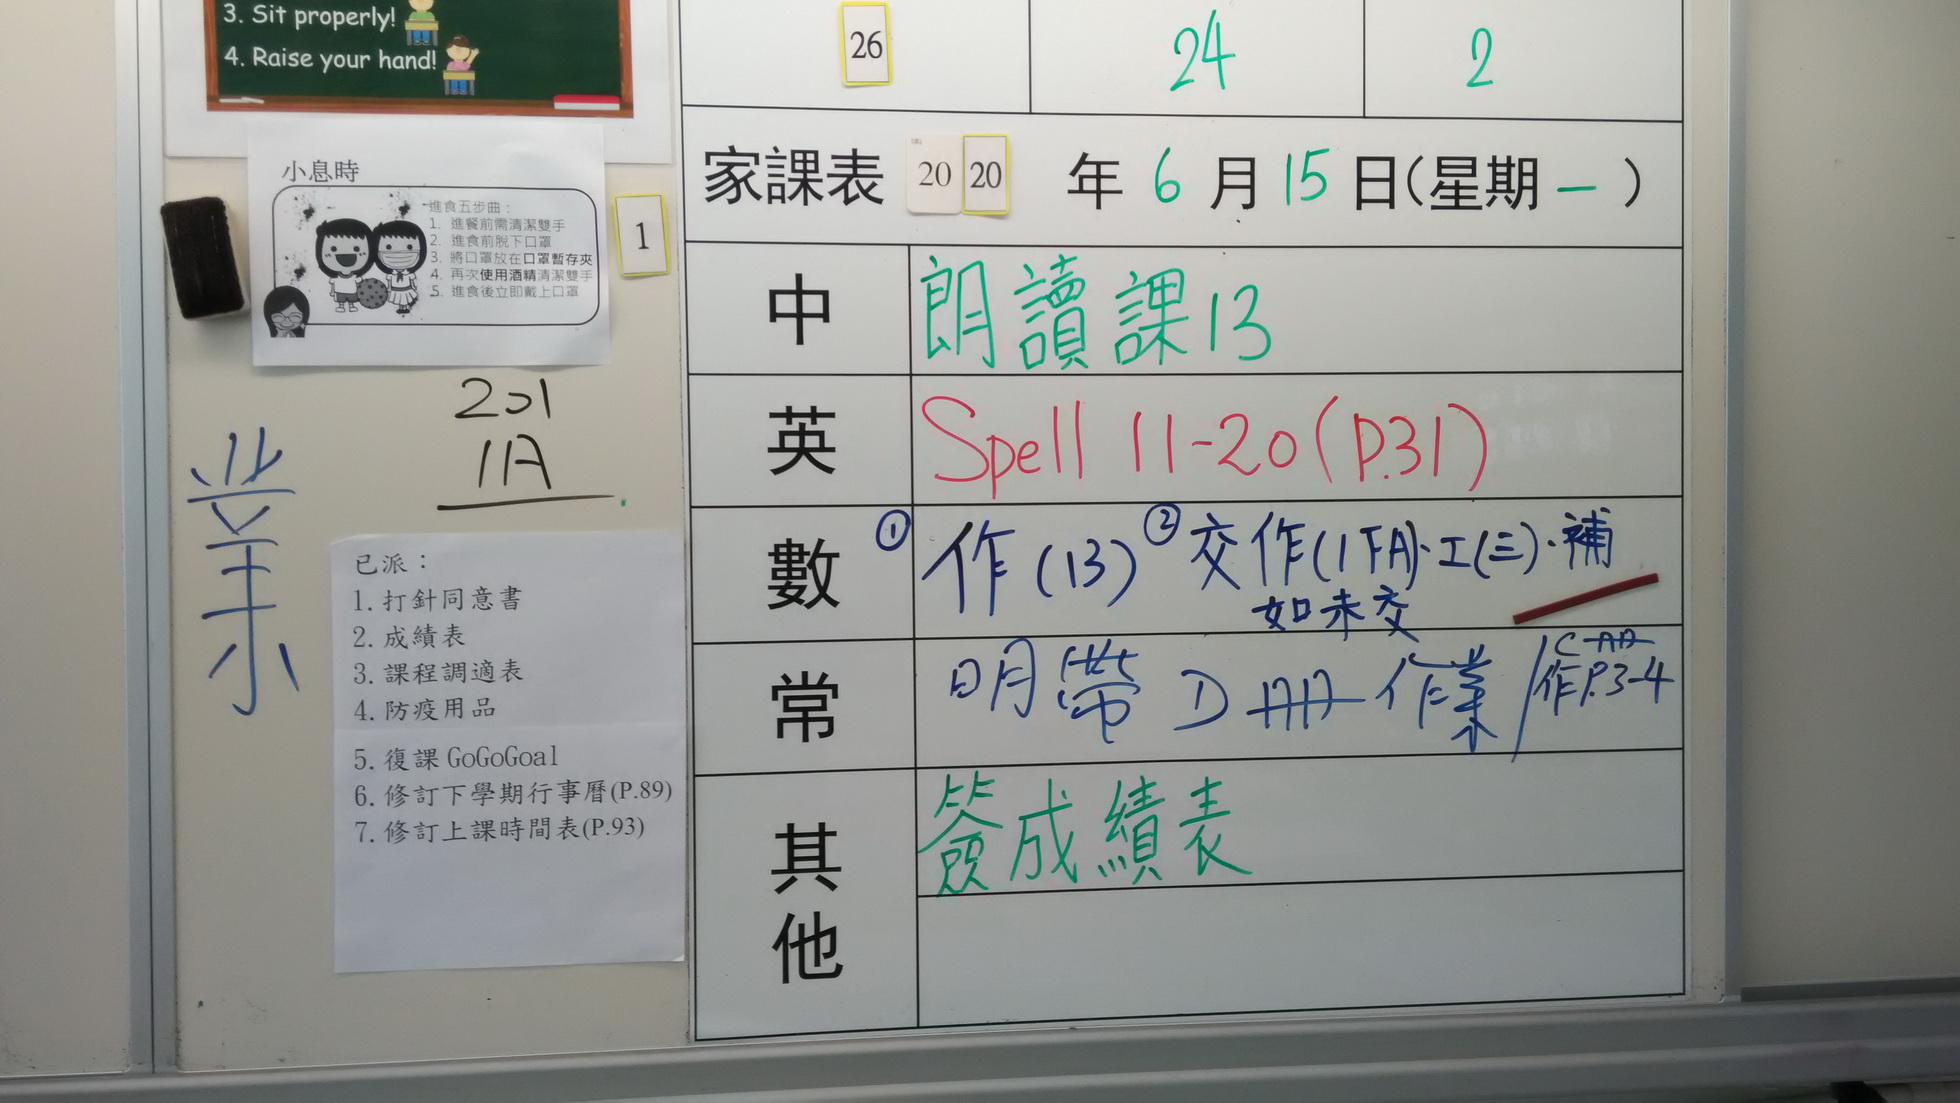 3. Sit properly!
4. Raise your hand!
26
24
2
小息時
進食五步曲：
1. 進餐前需清潔雙手
2. 進食前脫下口罩
3. 將口罩放在口罩暫存夾
4. 再次使用酒精清潔雙手
5. 進食後立即戴上口罩
1
201
1A
業
已派：
1. 打針同意書
2. 成績表
3. 課程調適表
4. 防疫用品
5. 復課 GoGoGoal
6. 修訂下學期行事曆(P.89)
7. 修訂上課時間表(P.93)
家課表 20 20 年 6 月 15 日(星期一)
中 朗讀課13
英 Spell 11-20(P.31)
數 ①作(13) ②交作(1下A)·工(三)·補
如未交
常 明帶 D 冊 作業 / C冊
作P.3-4
其他 簽成績表